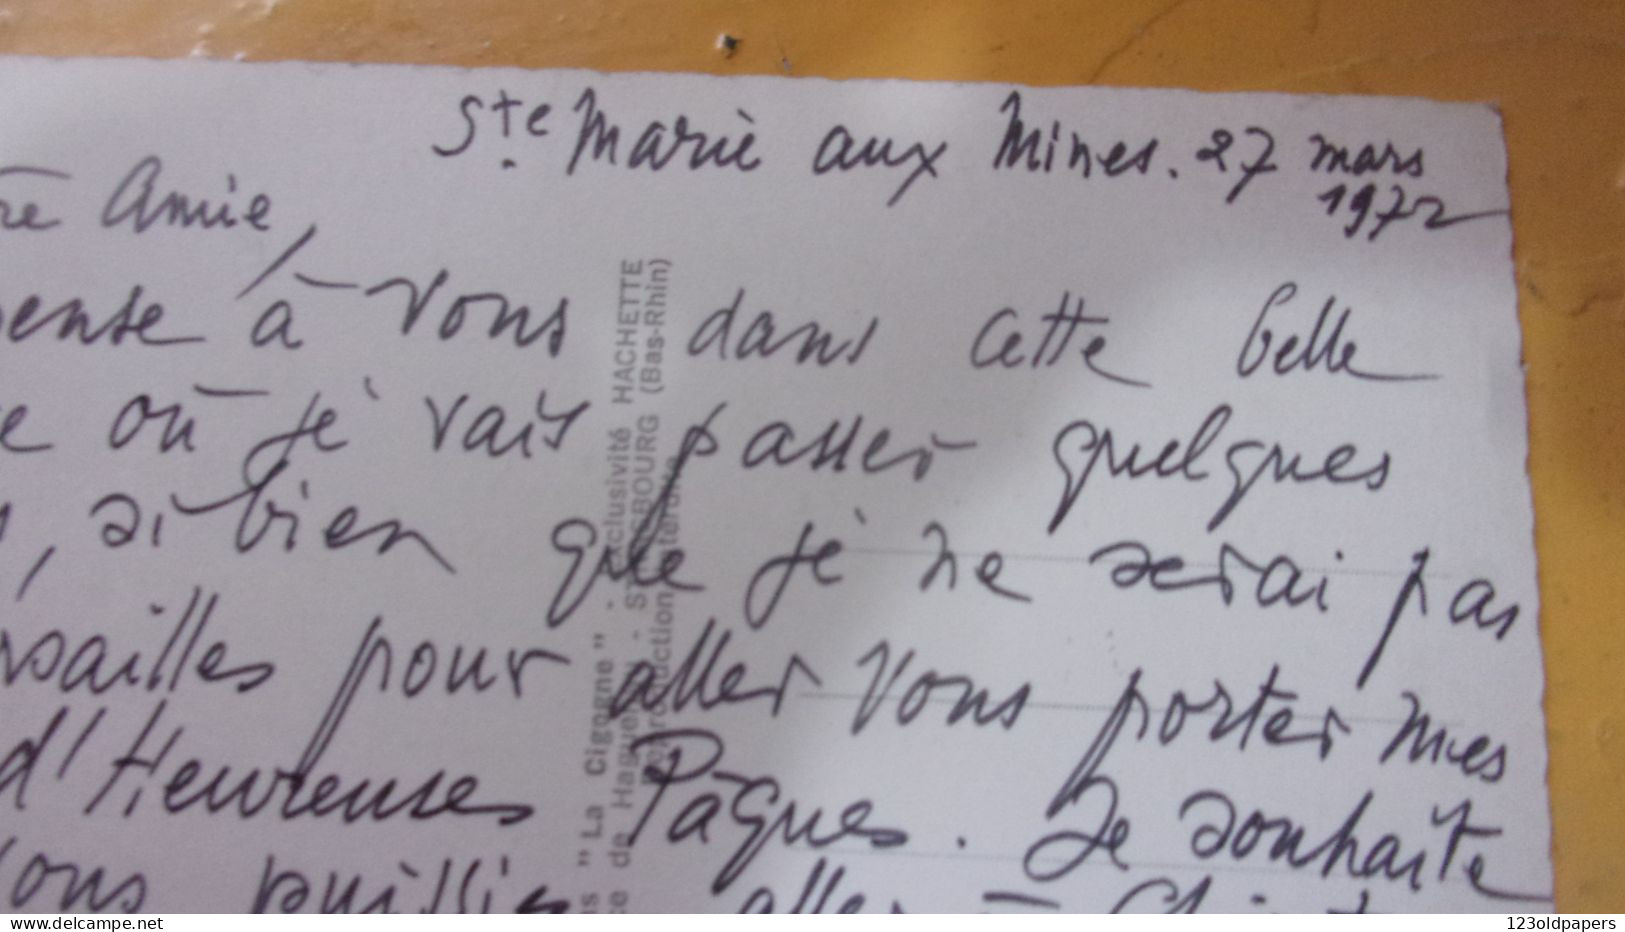 Ste Marie aux Mines. 27 mars
1972
Amie,
pense à vous dans cette belle
où je vais passer quelques
, si bien que je ne serai pas
rsailles pour aller vous porter mes
d'Heureuses Pâques. Je souhaite
vous puissiez aller à
"La Cigogne" - Exclusivité HACHETTE
de Haguenau - STRASBOURG (Bas-Rhin)
Reproduction interdite
delcampe.net
123oldpapers